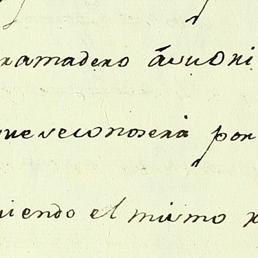 ramadero á su ori
que se conoserá por
iendo el mismo